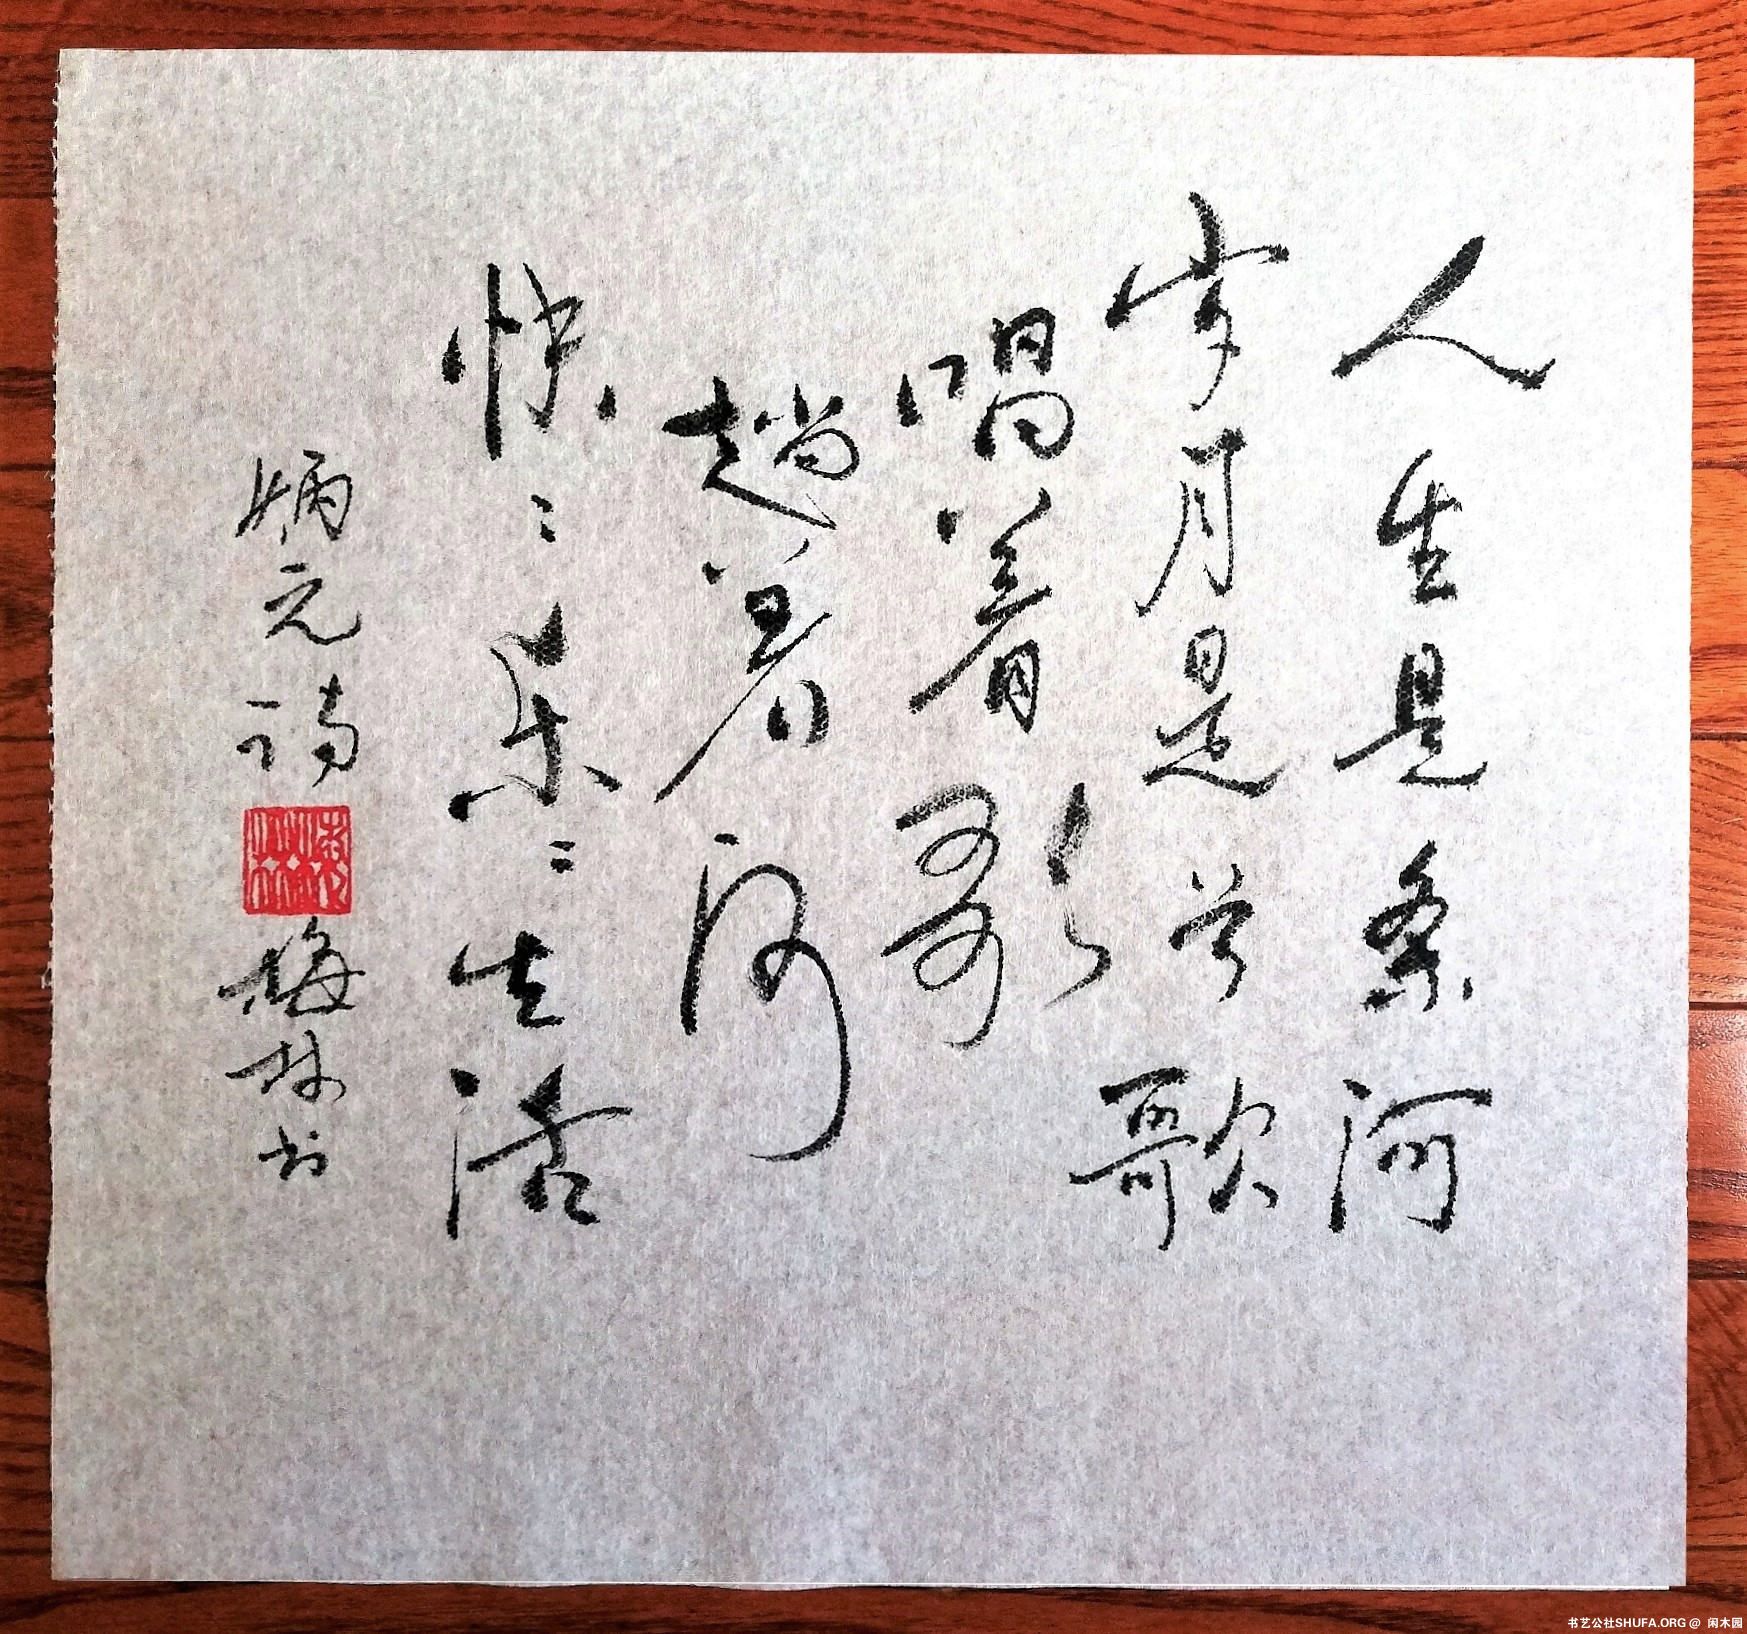 人生是条河
岁月是首歌
唱着歌
趟着河
快〻乐〻生活
炳元诗 梅林书
书艺公社SHUFA.ORG @ 闲木园